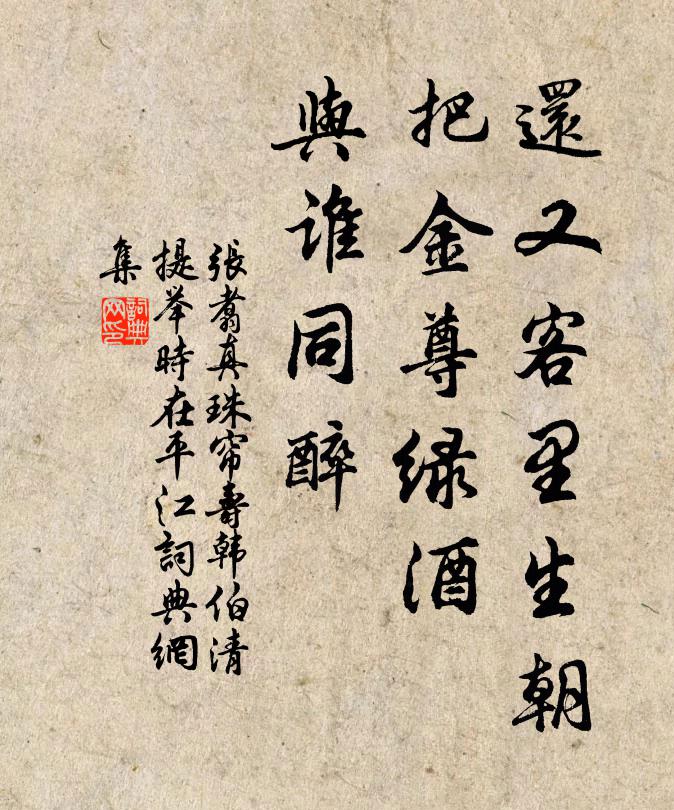 還又客里生朝
把金尊緑酒
與誰同醉
張翥真珠帘壽韩伯清
提举時在平江詞典網
集
詞典網印